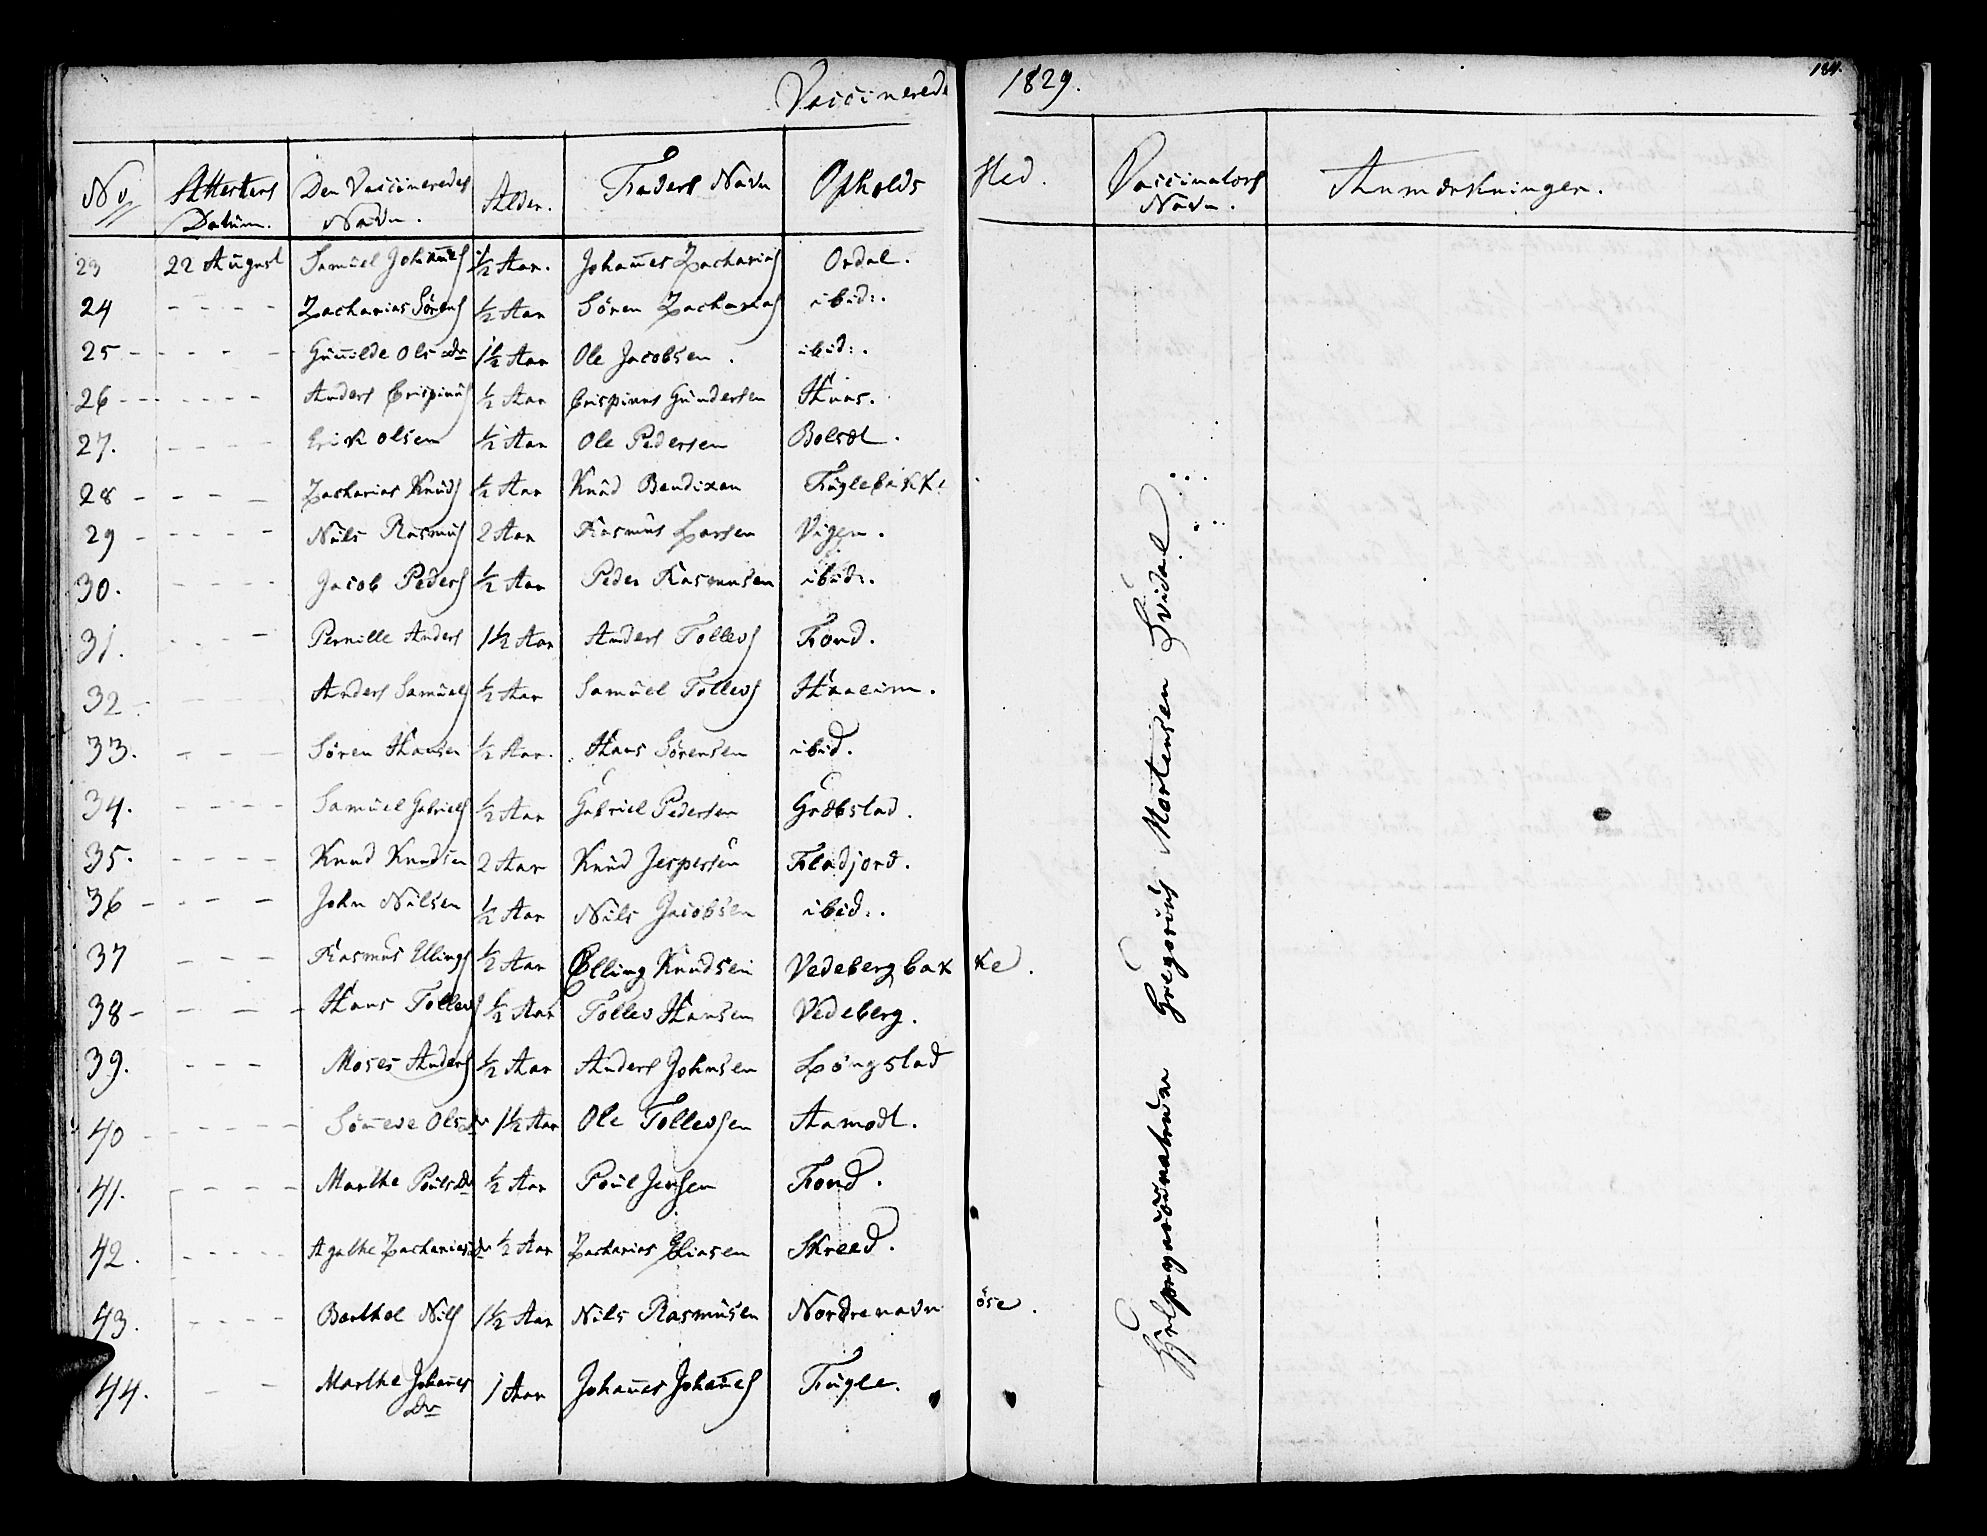 Vaccinerede 1829.
184.
No. Attestens Datum. Den Vaccineredes Navn. Alder. Faders Navn Opholds Sted. Vaccinators Navn. Anmærkninger.
23 22 August Samuel Johannes ½ Aar. Johannes Zacharias Ørdal.
24 - - - - Zacharias Sörens ½ Aar Sören Zacharias ibid:.
25 - - - - Gunnilde Ols Dr 1½ Aar Ole Jacobsen. ibid:.
26 - - - - - Anders Crispinus ½ Aar Crispinus Gundersen
27. - - - - Erik Olsen ½ Aar Ole Pedersen Bolsæt.
28 - - - - Zacharias Knuds ½ Aar Knud Bendixen Fuglebakke
29 - - - - Nils Rasmus 2 Aar Rasmus Larsen Vigen.
30. - - - - Jacob Peders ½ Aar Peder Rasmussen ibid:.
31. - - - Pernille Anders 1½ Aar Anders Tollevs Fond.
32 - - - - Anders Samuels ½ Aar Samuel Tollevs Haaeim.
33. - - - Sören Hansen ½ Aar. Hans Sörensen ibid.
34. - - - - Samuel Gabriels ½ Aar Gabriel Pedersen Græbstad.
35. - - - - Knud Knudsen 2 Aar Knud Jespersen Fladjord.
36 - - - - John Nilsen ½ Aar Nils Jacobsen ibid:.
37 - - - Rasmus Ellings ½ Aar Elling Knudsen Vedebergbakke.
38 - - - - Hans Tollevs ½ Aar Tollev Hansen Vedeberg.
39. - - - Moses Anders ½ Aar Anders Johnsen Löngstad
40 - - - - - Sönneve Ols Dr 1½ Aar Ole Tollevsen Aamodt.
41. - - - - Marthe Pouls Dr ½ Aar Poul Jensen Fond.
42. - - - - Agathe Zacharias Dr ½ Aar Zacharias Eliasen Skreed.
43. - - - - Barthol Nils 1½ Aar Nils Rasmusen Nordrenavnöse.
44. - - Marthe Johannes Dr 1 Aar Johannes Johannes Fugle.
Hjelpevaccinateur Gregorius Mortensen Hvidal